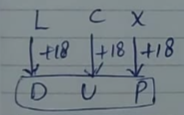 L C X
+18 +18 +18
D U P